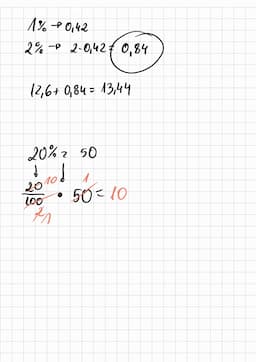 1% → 0,42
2% → 2·0,42 = 0,84
12,6 + 0,84 = 13,44
20% z 50
20 10 1
100 · 50 = 10
2 1